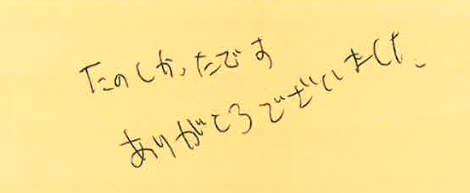 たのしかったです
ありがとうございました。